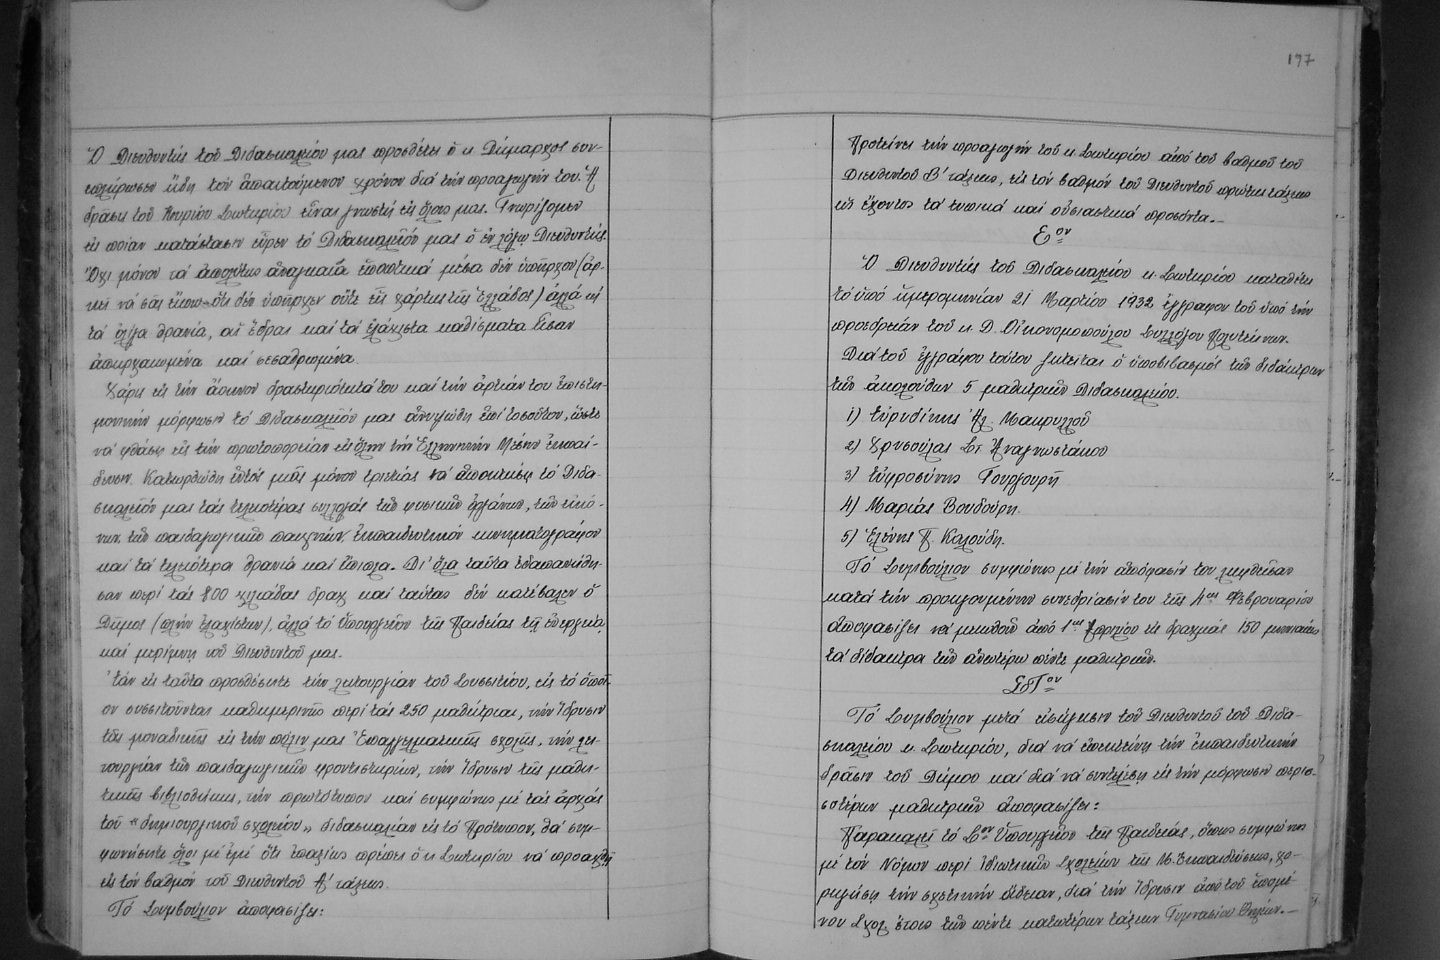 Ὁ Διευθυντής τοῦ Διδασκαλείου μας προσθέτει ὁ κ. Δήμαρχος συν-
επλήρωσεν ἤδη τόν ἀπαιτούμενον χρόνον διά τήν προαγωγήν του. Ἡ
δρᾶσις τοῦ Κυρίου Σωτηρίου εἶναι γνωστή εἰς ὅλους μας. Γνωρίζομεν
εἰς ποίαν κατάστασιν εὗρεν τό Διδασκαλεῖόν μας ὁ ἐν λόγῳ Διευθυντής.
Ὄχι μόνον τά ἀπολύτως ἀναγκαῖα ἐποπτικά μέσα δέν ὑπῆρχον (ἀρ-
κεῖ νά σᾶς εἴπω ὅτι δέν ὑπῆρχεν οὔτε εἷς χάρτης τῆς Ἑλλάδος) ἀλλά καί
τά ὀλίγα θρανία, αἱ ἕδραι καί τά ἐλάχιστα καθίσματα ἦσαν
ἀπηρχαιωμένα καί σεσαθρωμένα.
Χάρις εἰς τήν ἄοκνον δραστηριότητά του καί τήν ἀρτίαν του ἐπιστη-
μονικήν μόρφωσιν τό Διδασκαλεῖόν μας ἀνυψώθη ἐπί τοσοῦτον, ὥστε
νά φθάσῃ εἰς τήν πρωτοπορείαν εἰς ὅλην τήν Ἑλληνικήν Μέσην ἐκπαί-
δευσιν. Κατωρθώθη ἐντός μιᾶς μόνον τριετίας νά ἀποκτήσῃ τό Διδα-
σκαλεῖόν μας τάς τελειοτέρας συλλογάς τῶν φυσικῶν ὀργάνων, τῶν εἰκό-
νων, τῶν παιδαγωγικῶν παιγνίων, ἐκπαιδευτικόν κινηματογράφον
καί τά τελειότερα θρανία καί ἔπιπλα. Δι' ὅλα ταῦτα ἐδαπανήθη-
σαν περί τάς 800 χιλιάδας δραχ. καί ταύτας δέν κατέβαλεν ὁ
Δῆμος (πλήν ἐλαχίστων), ἀλλά τό Ὑπουργεῖον τῆς Παιδείας τῇ ἐνεργείᾳ
καί μερίμνῃ τοῦ Διευθυντοῦ μας.
Ἐάν εἰς ταῦτα προσθέσητε τήν λειτουργίαν τοῦ Συσσιτίου, εἰς τό ὁποῖ-
ον συσσιτοῦνται καθημερινῶς περί τάς 250 μαθήτριαι, τήν ἵδρυσιν
τῆς μοναδικῆς εἰς τήν πόλιν μας Ἐπαγγελματικῆς σχολῆς, τήν λει-
τουργίαν τῶν παιδαγωγικῶν φροντιστηρίων, τήν ἵδρυσιν τῆς μαθη-
τικῆς βιβλιοθήκης, τήν πρωτότυπον καί συμφώνως μέ τάς ἀρχάς
τοῦ «δημιουργικοῦ σχολείου» διδασκαλίαν εἰς τό Πρότυπον, θά συμ-
φωνήσητε ὅλοι μέ ἐμέ ὅτι ἐπαξίως πρέπει ὁ κ. Σωτηρίου νά προαχθῇ
εἰς τόν βαθμόν τοῦ Διευθυντοῦ Α' τάξεως.
Τό Συμβούλιον ἀποφασίζει:
197
Προτείνει τήν προαγωγήν τοῦ κ. Σωτηρίου ἀπό τοῦ βαθμοῦ τοῦ
Διευθυντοῦ Β' τάξεως, εἰς τόν βαθμόν τοῦ Διευθυντοῦ πρώτης τάξεως
ὡς ἔχοντος τά τυπικά καί οὐσιαστικά προσόντα.
Εον
Ὁ Διευθυντής τοῦ Διδασκαλείου κ. Σωτηρίου καταθέτει
τό ὑπό ἡμερομηνίαν 21 Μαρτίου 1932 ἔγγραφον τοῦ ὑπό τήν
προεδρείαν τοῦ κ. Δ. Οἰκονομοπούλου Συλλόγου Πολυτέκνων.
Διά τοῦ ἐγγράφου τούτου ζητεῖται ὁ ὑποβιβασμός τῶν διδάκτρων
τῶν ἀκολούθων 5 μαθητριῶν Διδασκαλείου.
1) Εὐρυδίκης Ἀλ. Μακρυλλοῦ
2) Χρυσούλας Στ. Ἀναγνωστάκου
3) Εὐφροσύνης Γουργουρῆ
4) Μαρίας Βουδούρη.
5) Ἑλένης Π. Καλούδη.
Τό Συμβούλιον συμφώνως μέ τήν ἀπόφασίν του ληφθεῖσαν
κατά τήν προηγουμένην συνεδρίασίν του τῆς 4ης Φεβρουαρίου
ἀποφασίζει νά μειωθοῦν ἀπό 1ης Ἀπριλίου εἰς δραχμάς 150 μηνιαίως
τά δίδακτρα τῶν ἀνωτέρω πέντε μαθητριῶν.
ΣΤον
Τό Συμβούλιον μετά εἰσήγησιν τοῦ Διευθυντοῦ τοῦ Διδα-
σκαλείου κ. Σωτηρίου, διά νά ἐπεκτείνῃ τήν ἐκπαιδευτικήν
δρᾶσιν τοῦ Δήμου καί διά νά συντελέσῃ εἰς τήν μόρφωσιν περισ-
σοτέρων μαθητριῶν ἀποφασίζει:
Παρακαλεῖ τό Σον Ὑπουργεῖον τῆς Παιδείας, ὅπως συμφώνως
μέ τόν Νόμον περί Ἰδιωτικῶν Σχολείων τῆς Μ. Ἐκπαιδεύσεως, χο-
ρηγήσῃ τήν σχετικήν ἄδειαν, διά τήν ἵδρυσιν ἀπό τοῦ ἑπομέ-
νου Σχολ. ἔτους τῶν πέντε κατωτέρων τάξεων Γυμνασίου Θηλέων.